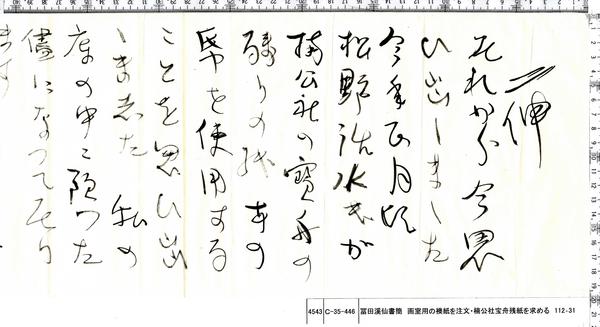 二伸
それから今思
ひ出しました
今年正月頃
松野 水 が
楠公社の寳舟の
残りの紙 あの
帋を使用する
ことを思ひ出
しました 私の
庫の中に つた
儘になつてをり
ます
4543 C-35-446 冨田溪仙書簡 画室用の襖紙を注文・楠公社宝舟残紙を求める 112-31